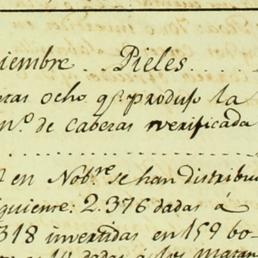 iembre Pieles
tas ocho qe. produjo la
no. de Cabezas verificada
en Nobre. se han distribu
iguiente: 2.376 dadas á
318 invertidas en 159 bo